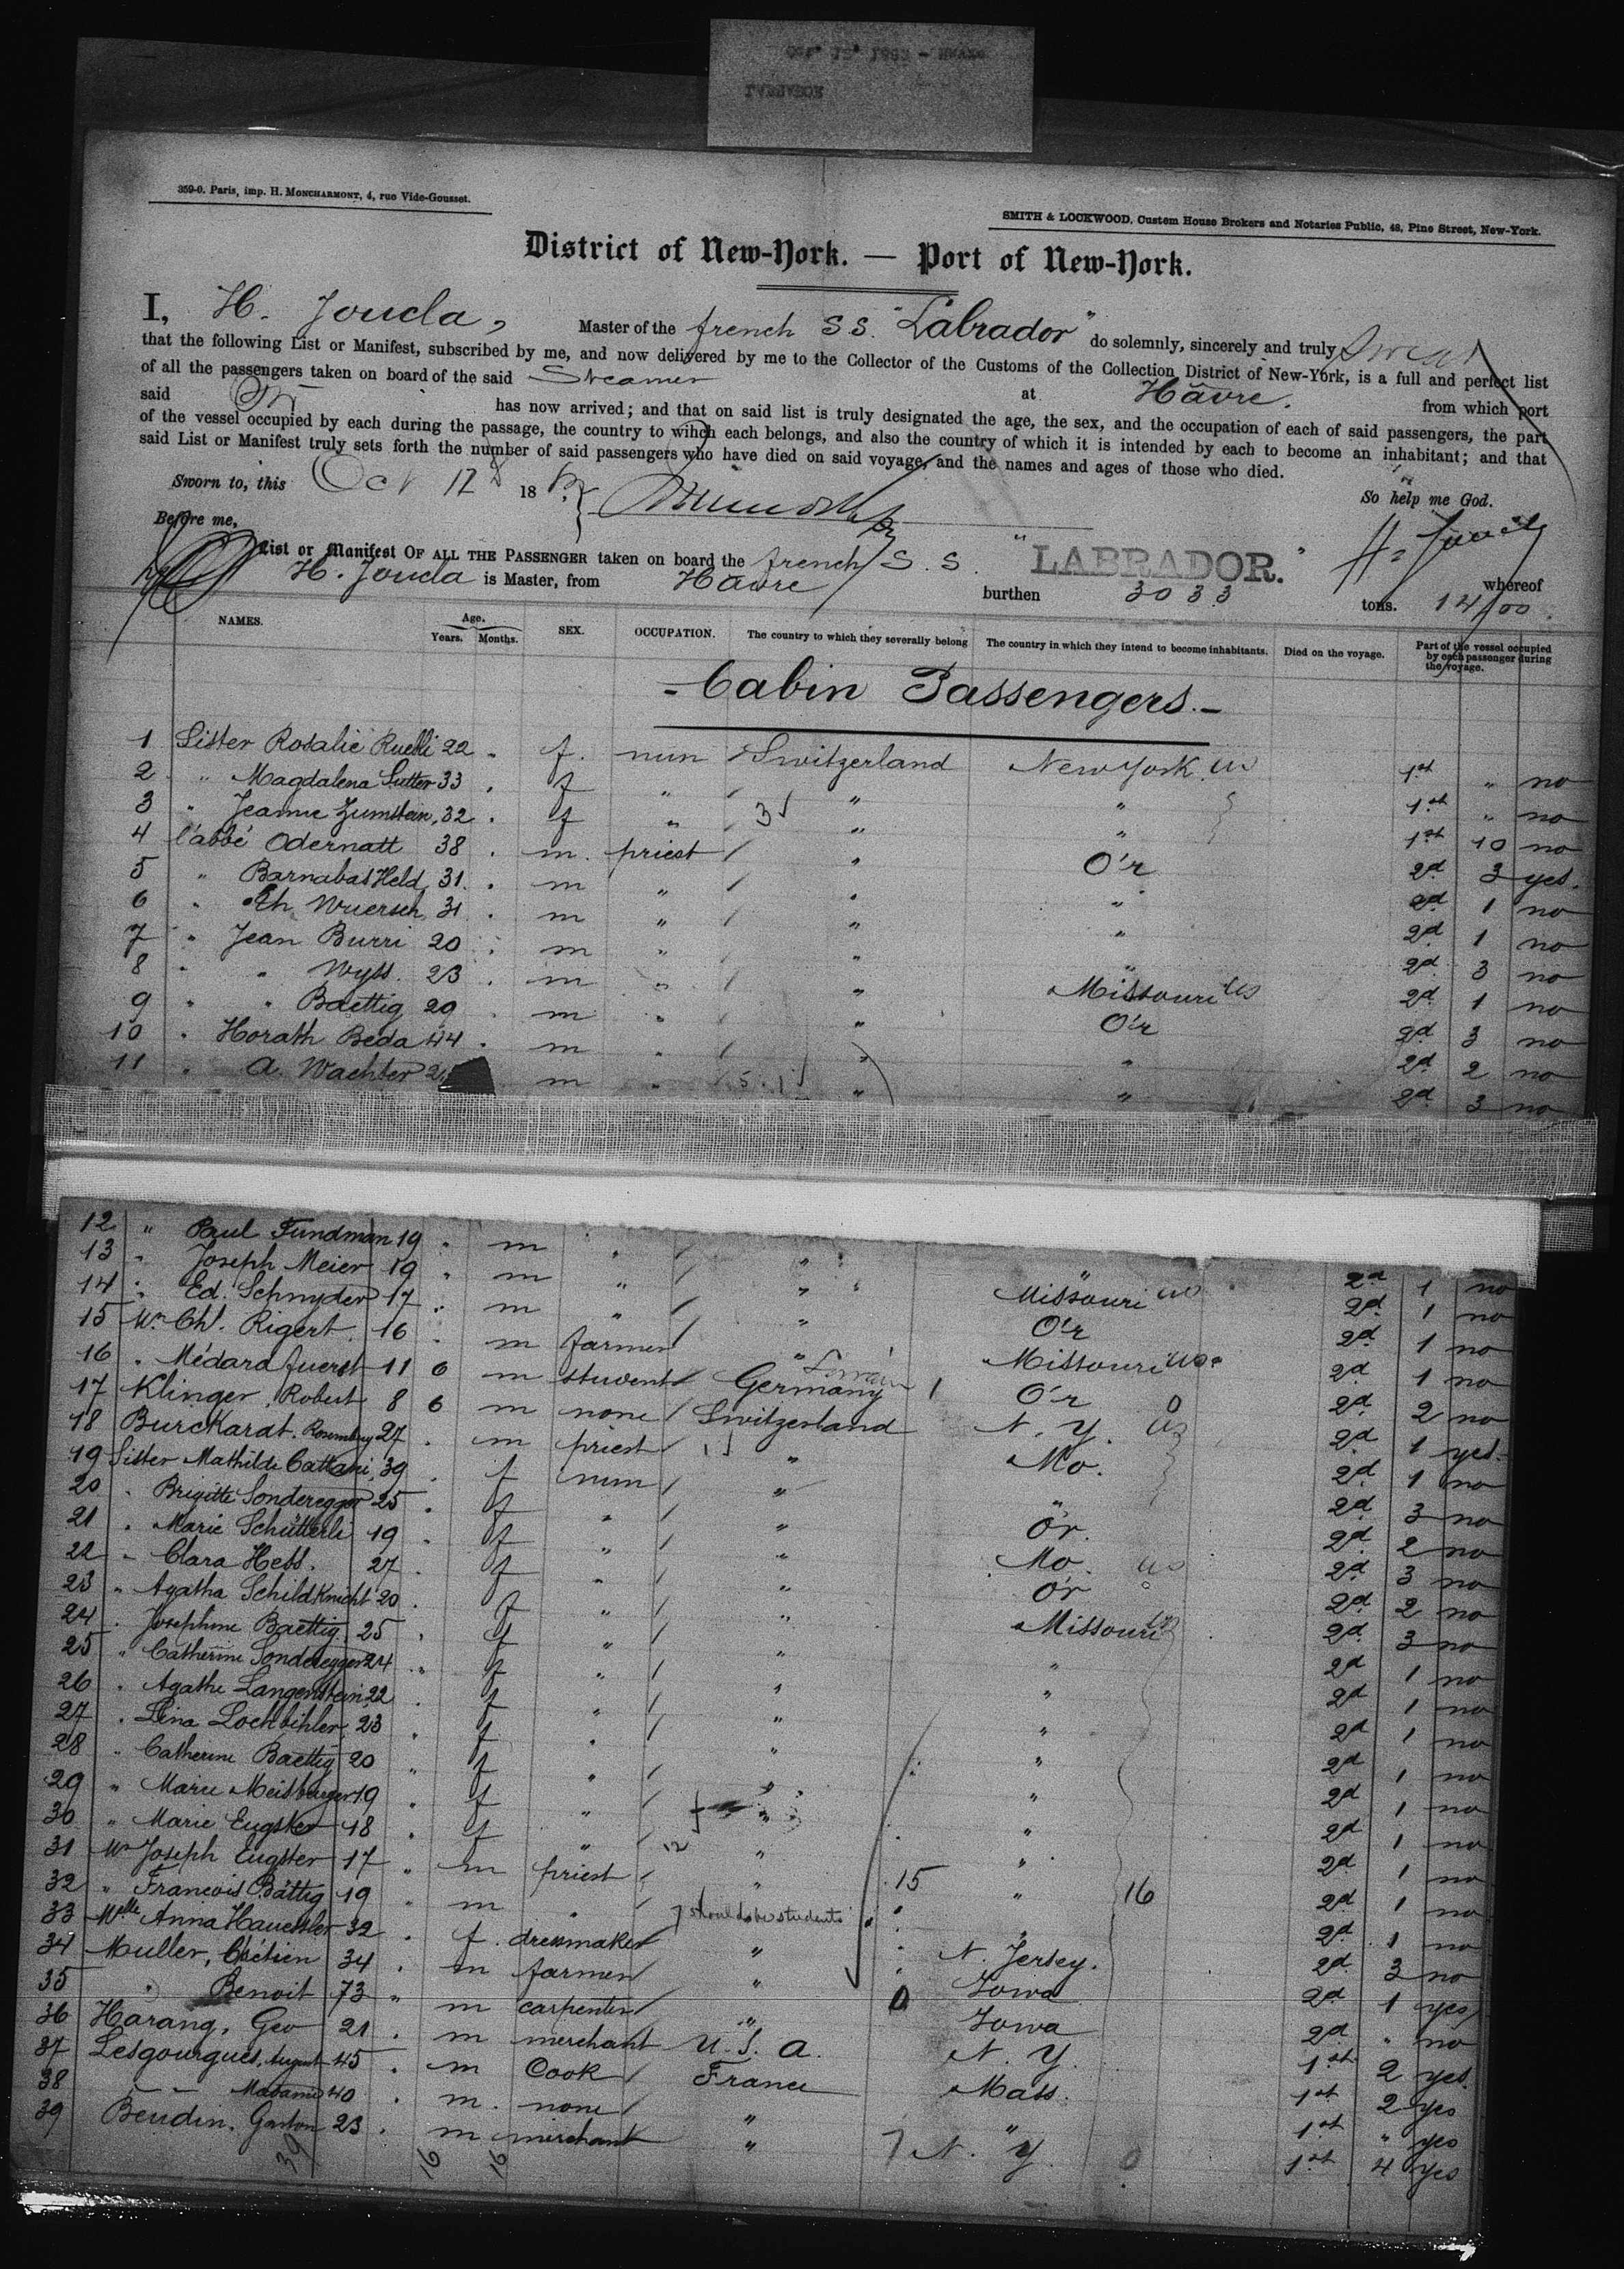 359-0. Paris, imp. H. MONCHARMONT, 4, rue Vide-Gousset.
SMITH & LOCKWOOD, Custom House Brokers and Notaries Public, 48, Pine Street, New-York.
District of New-York. — Port of New-York.
I, H. Joucla, Master of the french SS. "Labrador" do solemnly, sincerely and truly swear
that the following List or Manifest, subscribed by me, and now delivered by me to the Collector of the Customs of the Collection District of New-York, is a full and perfect list
of all the passengers taken on board of the said Steamer at Havre. from which port
said has now arrived; and that on said list is truly designated the age, the sex, and the occupation of each of said passengers, the part
of the vessel occupied by each during the passage, the country to wihch each belongs, and also the country of which it is intended by each to become an inhabitant; and that
said List or Manifest truly sets forth the number of said passengers who have died on said voyage, and the names and ages of those who died.
So help me God.
Sworn to, this Oct 12 18
Before me,
List or Manifest OF ALL THE PASSENGER taken on board the french S. S. "LABRADOR." whereof
H. Joucla is Master, from Havre burthen 3033 tons. 14/00
NAMES. Age. Years. Months. SEX. OCCUPATION. The country to which they severally belong The country in which they intend to become inhabitants. Died on the voyage. Part of the vessel occupied by each passenger during the voyage.
- Cabin Passengers. -
1 Sister Rosalie Ruebli 22 " f. nun Switzerland New York US 1st " no
2 " Magdalena Sutter 33 . f " " " 1st " no
3 " Jeanne Zumstein, 32 . f " 3 " " 1st 10 no
4 l'abbé Odernatt 38 . m. priest " O'r 2d 3 yes.
5 " Barnabas Held, 31. . m " " " 2d 1 no
6 " Wuersch 31 . m " " " 2d 1 no
7 " Jean Burri 20 . m " " " 2d 3 no
8 " " Wyss. 23 . m " " Missouri US 2d 1 no
9 " " Baettig 29 . m " " O'r 2d 3 no
10 " Horath Beda 44 . m " " " 2d 2 no
11 " A. Wachter m " " " 2d 3 no
12 " Paul Fundman 19 . m " " " 2d 1 no
13 " Joseph Meier 19 . m " " Missouri US 2d 1 no
14 " Ed. Schnyder 17 . m " " O'r 2d 1 no
15 Mr. Chl. Rigert. 16 . m farmer " Missouri US 2d 1 no
16 " Médard fuerst 11 6 m student Germany 1 O'r 2d 2 no
17 Klinger, Robert 8 6 m none Switzerland N. Y. US 2d 1 yes.
18 Burckardt, 27 . m priest " Mo. 2d 1 no
19 Sister Mathilde Cattani, 39 . f nun " " 2d 3 no
20 " Brigitte Sonderegger 25 . f " " O'r. 2d 2 no
21 " Marie Schütterli 19 . f " " Mo. US 2d 3 no
22 " Clara Hess. 27 . f " " O'r 2d 2 no
23 " Agatha Schildknicht 20 . f " " Missouri US 2d 3 no
24 " Josephine Baettig. 25 . f " " " 2d 1 no
25 " Catherine Sonderegger 24 " f " " " 2d 1 no
26 " Agathe Langenstein 22 . f " " " 2d 1 no
27 " Lina Lochbihler, 23 " f " " " 2d 1 no
28 " Catherine Baettig 20 " f " " " 2d 1 no
29 " Marie Meisberger 19 . f " " " 2d 1 no
30 " Marie Eugster 18 . f " 12 " " 2d 1 no
31 Mr Joseph Eugster 17 " m priest " 15 " 16 2d 1 no
32 " Francois Bättig 19 " m " should be students " 2d 1 no
33 Melle Anna Hauessler 32 . f. dressmaker " N. Jersey. 2d 3 no
34 Muller, Chétien 34 . m farmer " Iowa 2d 1 yes
35 " Benoit 73 " m carpenter " 0 Iowa 2d " no
36 Harang, Geo 21 . m merchant U. S. A. N. Y. 1st 2 yes.
37 Lesgourgues, August 45 . m Cook France Mass. 1st 2 yes
38 — — Madame 40 . m. none " " 1st " yes
39 Beudin, Gaston 23 . m merchant " 7 N. Y. 0 1st 4 yes
39 16 16